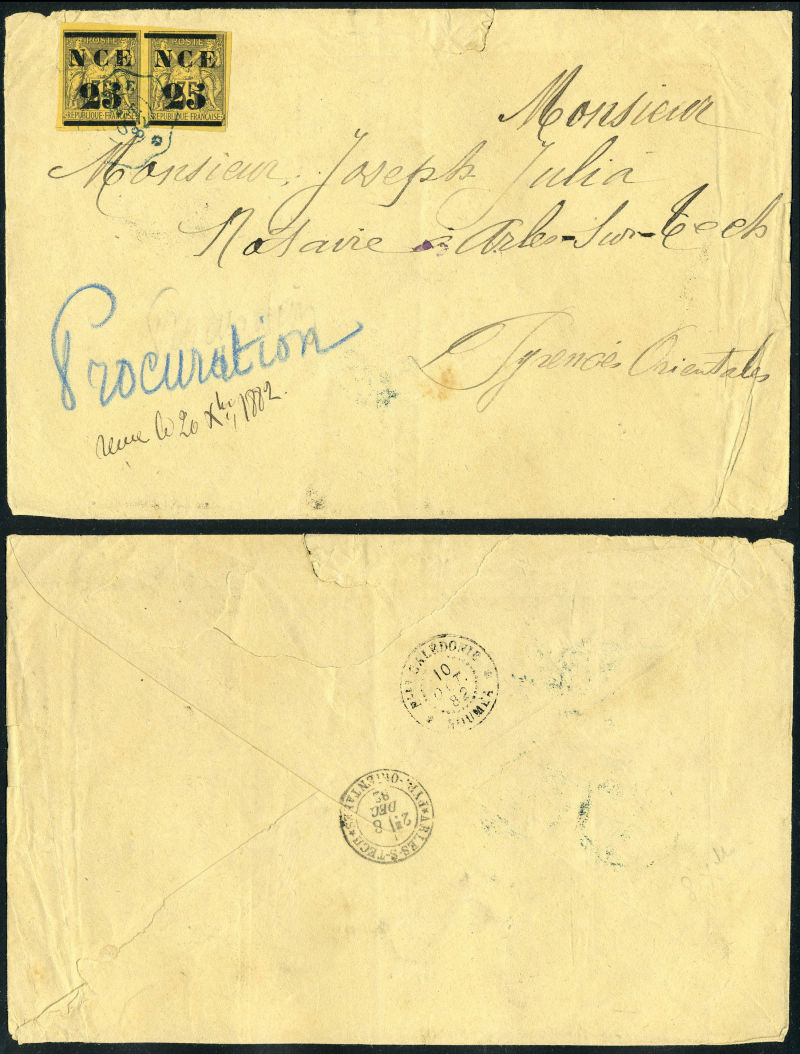 POSTE POSTE
NCE NCE
25 25
REPUBLIQUE FRANÇAISE REPUBLIQUE FRANÇAISE
Monsieur
Monsieur Joseph Julia
Notaire à Arles-Sur-Tech
Pyrenées Orientales
Procuration
le 20 Xbre 1882.
NLLE CALEDONIE
10
82
NOUMEA
ARLES-S-TECH
2E 8
DEC
82
PYR.-ORIENTALES